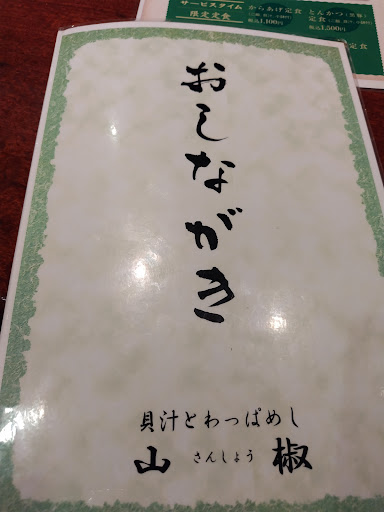 サービスタイム
限定定食
からあげ定食
税込1,100円
とんかつ
定食
税込1,500円
おしながき
貝汁とわっぱめし
山椒
さんしょう